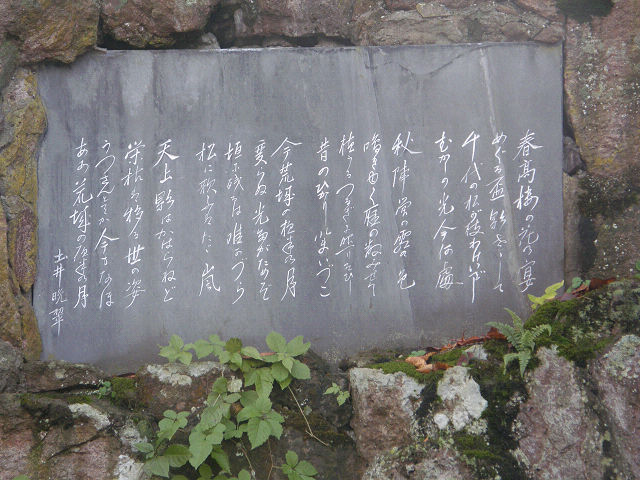 春高楼の花の宴
めぐる盃影さして
千代の松が枝わけいでし
むかしの光今いづこ
秋陣営の霜の色
鳴き行く雁の数見せて
植うるつるぎに照りそひし
昔の光今いづこ
今荒城の夜半の月
変らぬ光たがためぞ
垣に残るは唯かづら
松に歌ふはたゞ嵐
天上影はかはらねど
栄枯は移る世の姿
うつさんとてか今もなほ
あゝ荒城の夜半の月
土井晩翠